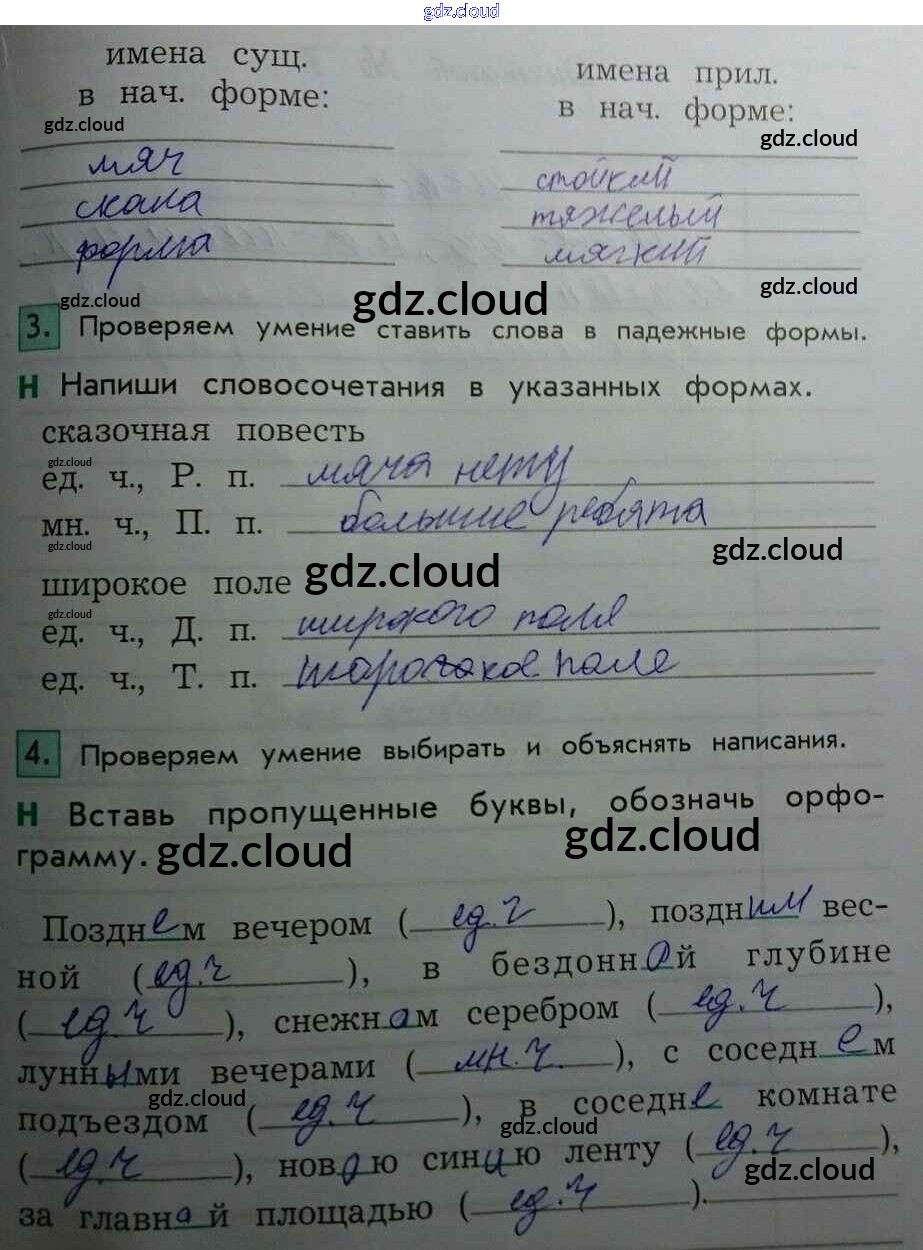 gdz.cloud
имена сущ. имена прил.
в нач. форме: в нач. форме:
gdz.cloud gdz.cloud
мяч стойкий
скала тяжелый
форма мягкий
gdz.cloud gdz.cloud gdz.cloud
3. Проверяем умение ставить слова в падежные формы.
Н Напиши словосочетания в указанных формах.
сказочная повесть
gdz.cloud
ед. ч., Р. п. мяча нету
мн. ч., П. п. большие ребята
gdz.cloud gdz.cloud
широкое поле gdz.cloud
gdz.cloud
ед. ч., Д. п. широкого поля
ед. ч., Т. п. поле
4. Проверяем умение выбирать и объяснять написания.
Н Вставь пропущенные буквы, обозначь орфо-
грамму. gdz.cloud gdz.cloud
Позднем вечером (ед.ч), поздним вес-
ной (ед.ч), в бездонной глубине
(ед.ч), снежнам серебром (ед.ч),
лунными вечерами (мн.ч), с соседнем
gdz.cloud
подъездом (ед.ч), в соседне комнате
gdz.cloud
(ед.ч), новою синию ленту (ед.ч),
gdz.cloud
за главнай площадью (ед.ч).